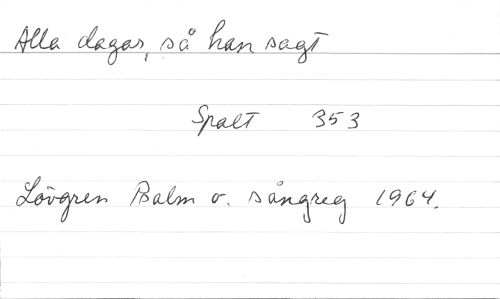 Alla dagar, så han sagt
Spalt 353
Lövgren Psalm o. sångreg 1964.